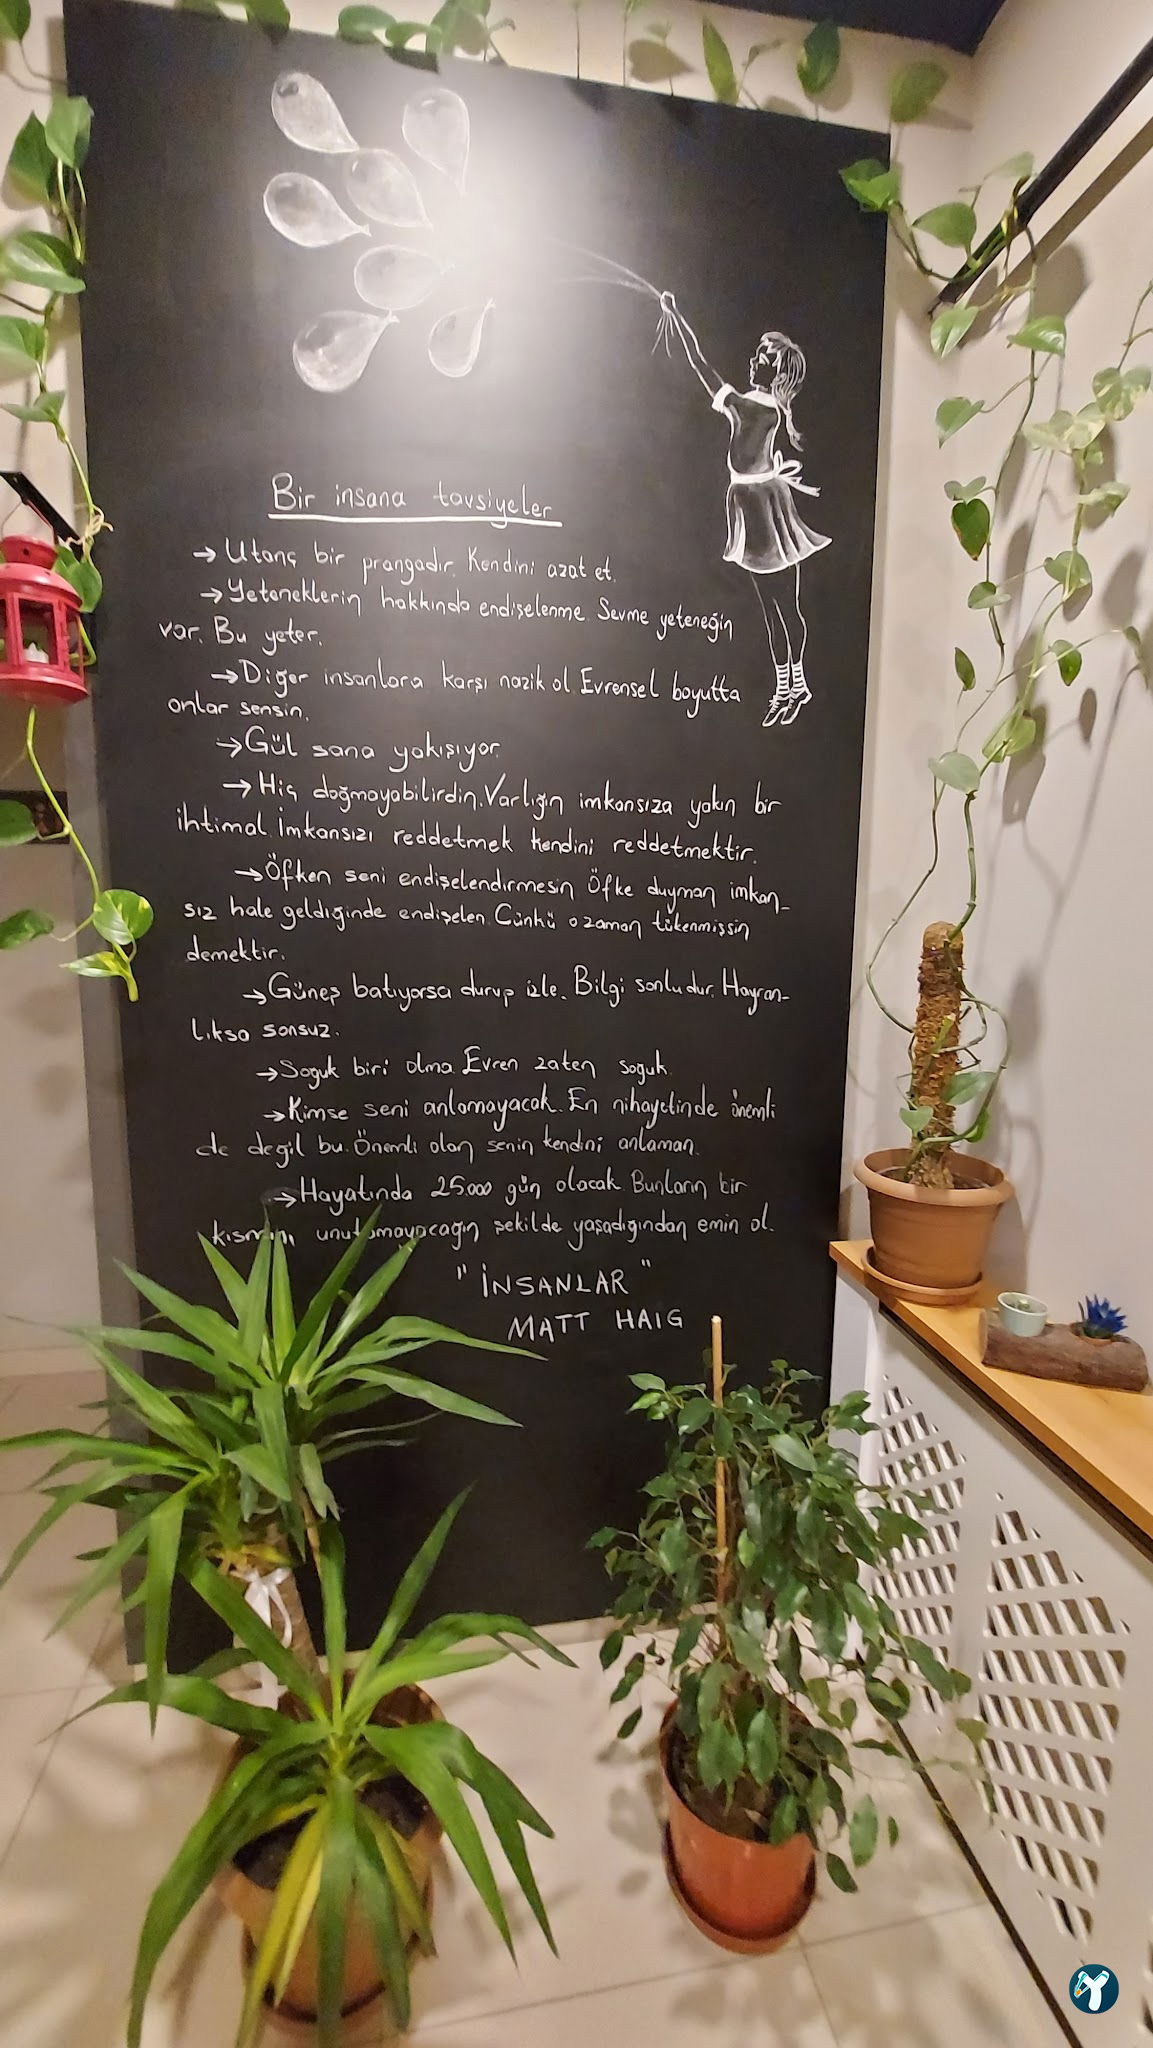 Bir insana tavsiyeler
→ Utanç bir prangadır. Kendini azat et.
→ Yeteneklerin hakkında endişelenme. Sevme yeteneğin
var. Bu yeter.
→ Diğer insanlara karşı nazik ol. Evrensel boyutta
onlar sensin.
→ Gül sana yakışıyor.
→ Hiç doğmayabilirdin. Varlığın imkansıza yakın bir
ihtimal. İmkansızı reddetmek kendini reddetmektir.
→ Öfken seni endişelendirmesin. Öfke duyman imkan-
sız hale geldiğinde endişelen. Çünkü o zaman tükenmişsin
demektir.
→ Güneş batıyorsa durup izle. Bilgi sonludur. Hayran-
lıksa sonsuz.
→ Soğuk biri olma. Evren zaten soğuk.
→ Kimse seni anlamayacak. En nihayetinde önemli
de değil bu. Önemli olan senin kendini anlaman.
→ Hayatında 25.000 gün olacak. Bunların bir
kısmını unutamayacağın şekilde yaşadığından emin ol.
"İNSANLAR"
MATT HAIG